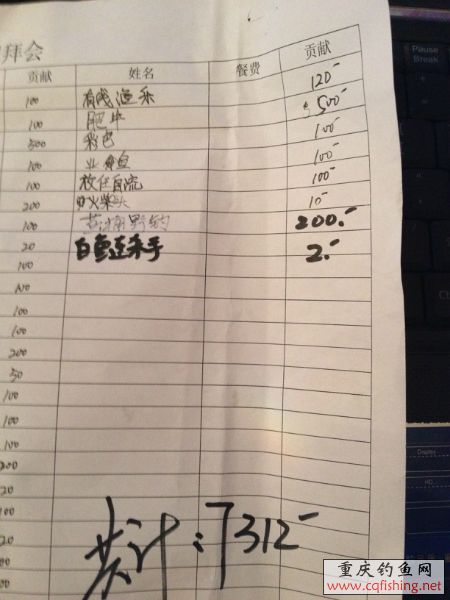 拜会
贡献 姓名 餐费 贡献
100 有线渔乐 120-
100 肥牛 500-
500 彩巴 100-
100 业余鱼 100-
100 放任自流 100-
200 火柴头 10-
100 野钓 200.-
20 白鱼连杀手 2.-
100
100
100
100
200
50
100
100
100
200
20
100
20
00
00
共计:7312-
Pause
Break
Display
HD
重庆钓鱼网
www.cqfishing.net